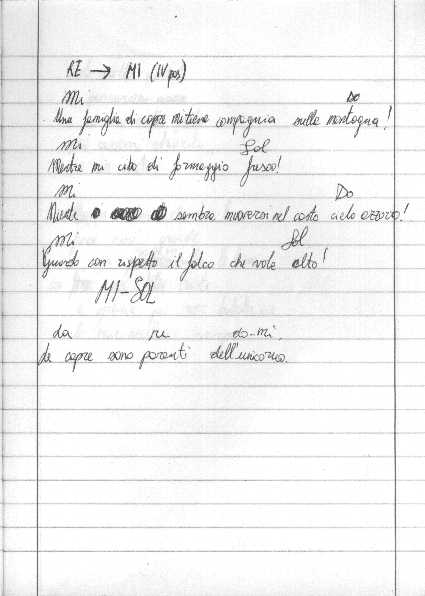 RE → MI (IV pos)
Mi Do
Una famiglia di capre mi tiene compagnia sulla montagna!
mi Sol
Mentre mi cibo di formaggio fresco!
mi Do
Niente sembra muoversi nel casto cielo azzurro!
mi Sol
Guardo con rispetto il falco che vola alto!
MI-SOL
da re do-mi.
Le capre sono parenti dell'unicorno.